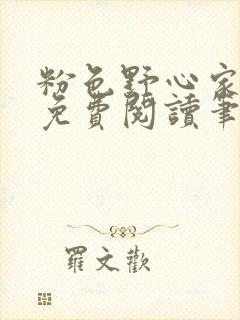 粉色野心家
免費閱讀筆
羅文歡